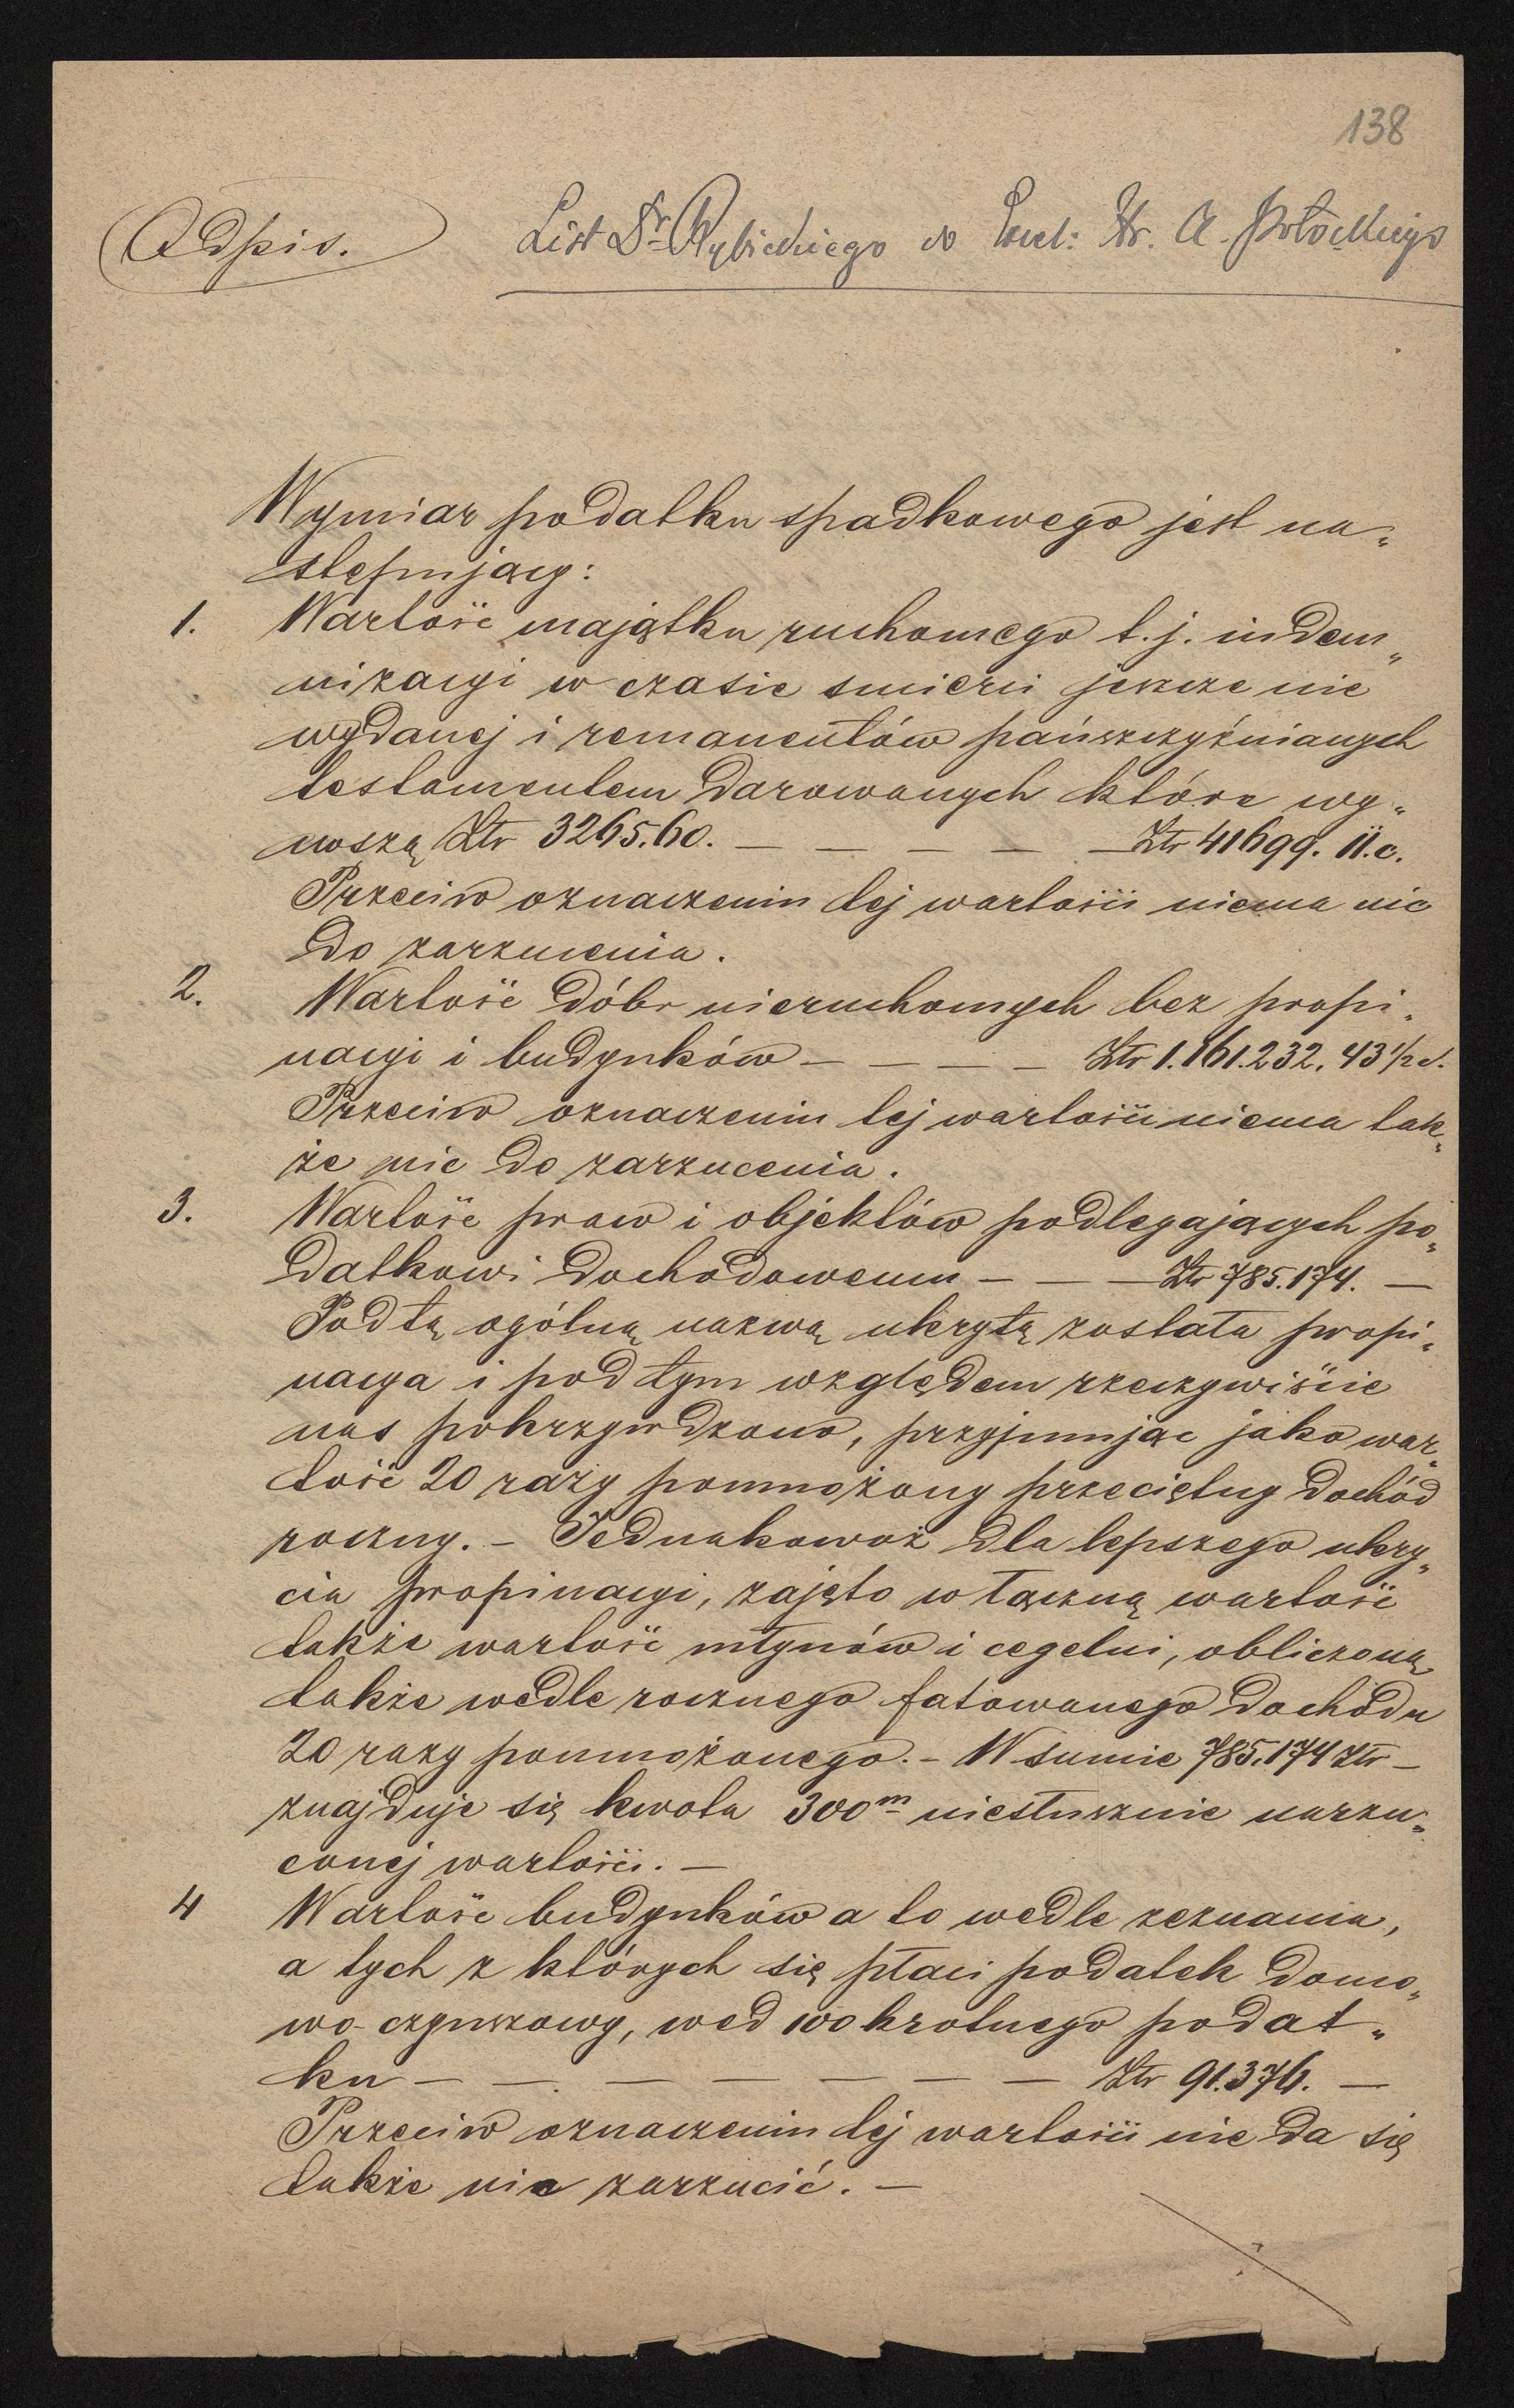 138
Odpis. List Dr Rybickiego do Excel: Hr. A. Potockiego
Wymiar podatku spadkowego jest na„
stępujący:
1. Wartość majątku ruchomego t.j. indem„
nizacyi w czasie smierci jeszcze nie
wydanej i remanentów pańszczyźnianych
testamentem darowanych które wy„
noszą Złr 3265.60. — — — — — Złr 41699. 11.c.
Przeciw oznaczeniu tej wartości niema nic
do zarzucenia.
2. Wartość dóbr nieruchomych bez propi„
nacyi i budynków — — — — Złr 1.161.232. 43 1/2 c.
Przeciw oznaczeniu tej wartości niema tak„
że nic do zarzucenia.
3. Wartość praw i objektów podlegających po„
datkowi dochodowemu — — — Złr 785.174. —
Pod tą ogólną nazwą ukrytą została propi„
nacya i pod tym względem rzeczywiście
nas pokrzywdzono, przyjmując jako war„
tość 20 razy pomnożony przeciętny dochód
roczny. — Jednakowoż dla lepszego ukry„
cia propinacyi, zajęto w łączną wartość
także wartość młynów i cegelni, obliczoną
także wedle rocznego fatowanego dochodu
20 razy pomnożonego. — W sumie 785.174 Złr —
znajduje się kwota 300m niesłusznie narzu„
conej wartości. —
4 Wartość budynków a to wedle zeznania,
a tych z których się płaci podatek domo„
wo-czynszowy, wed 100 krotnego podat„
ku — — — — — — — Złr 91.376. —
Przeciw oznaczeniu tej wartości nie da się
także nic zarzucić. —